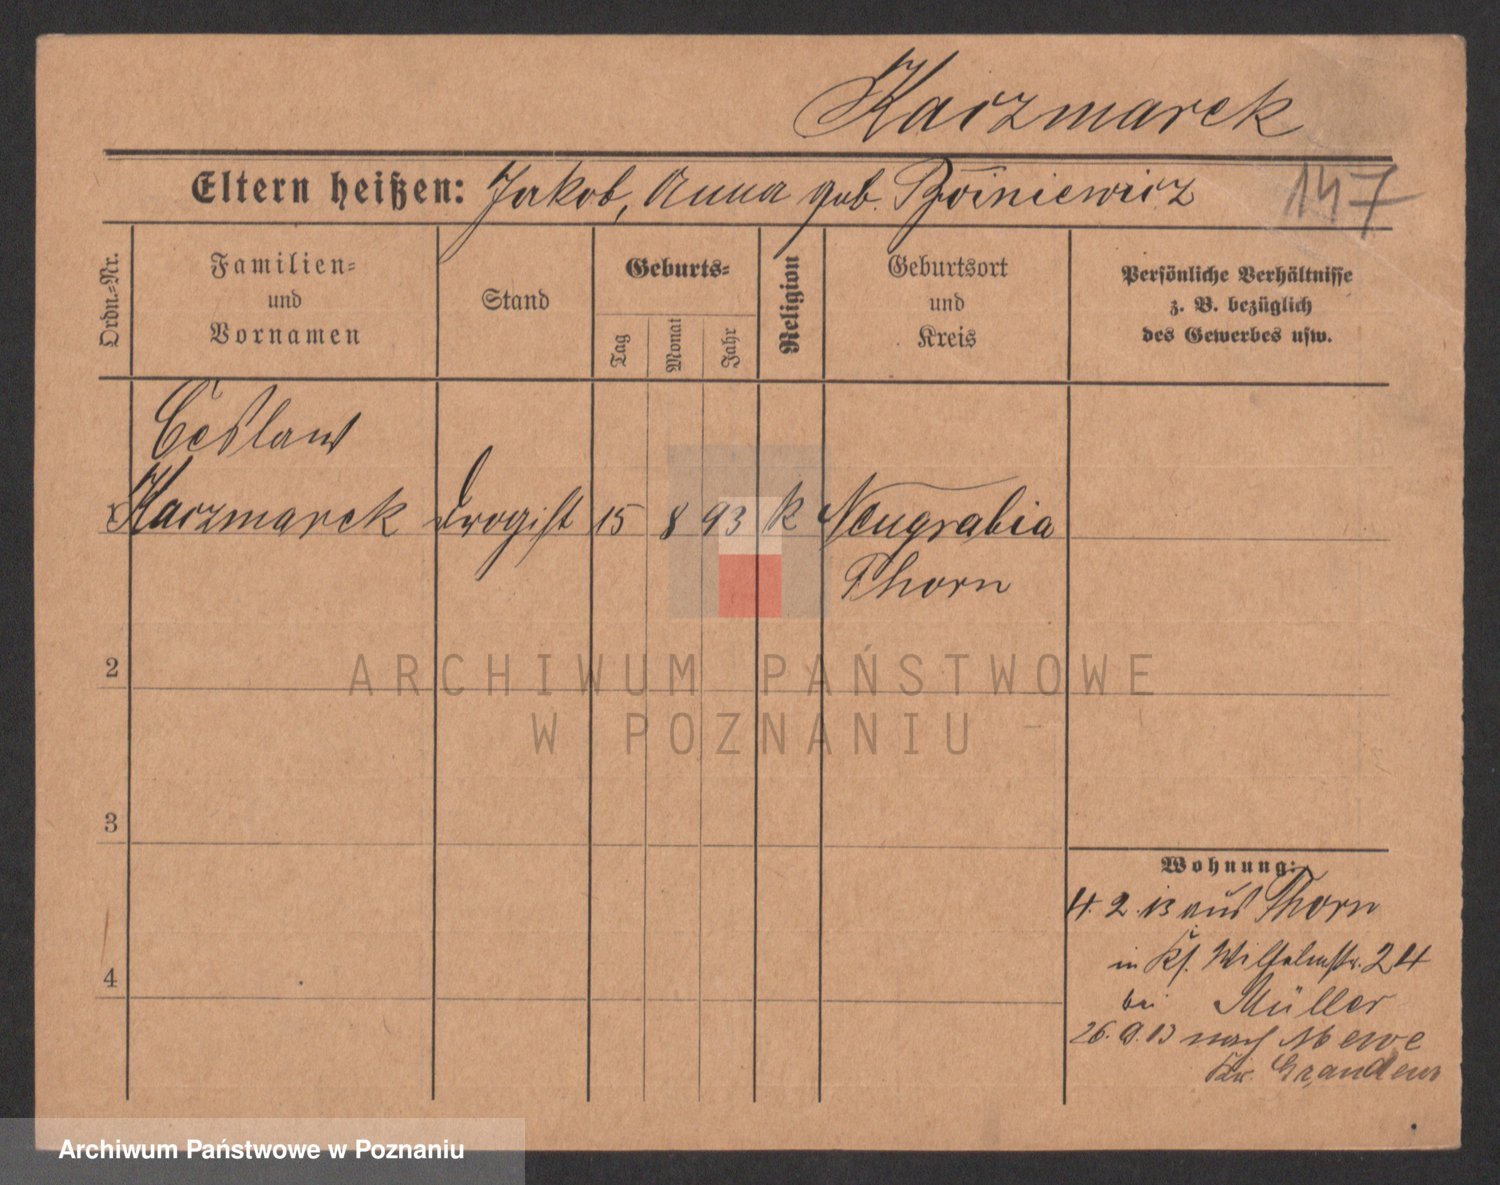 Kaczmarek
Eltern heißen: Jakob, Anna geb. Bóiniewicz
147
Ordn.-Nr.
Familien-
und
Vornamen
Stand
Geburts-
Tag
Monat
Jahr
Religion
Geburtsort
und
Kreis
Persönliche Verhältnisse
z. B. bezüglich
des Gewerbes usw.
Ceslaus
1 Kaczmarek Drogist 15 8 93 k Neugrabia
Thorn
ARCHIWUM PAŃSTWOWE
W POZNANIU
2
3
4
Wohnung:
4. 2. 13 aus Thorn
in Ks. Wilhelmstr. 24
bei Müller
26. 9. 13 nach Mewe
Kr. Graudenz
Archiwum Państwowe w Poznaniu